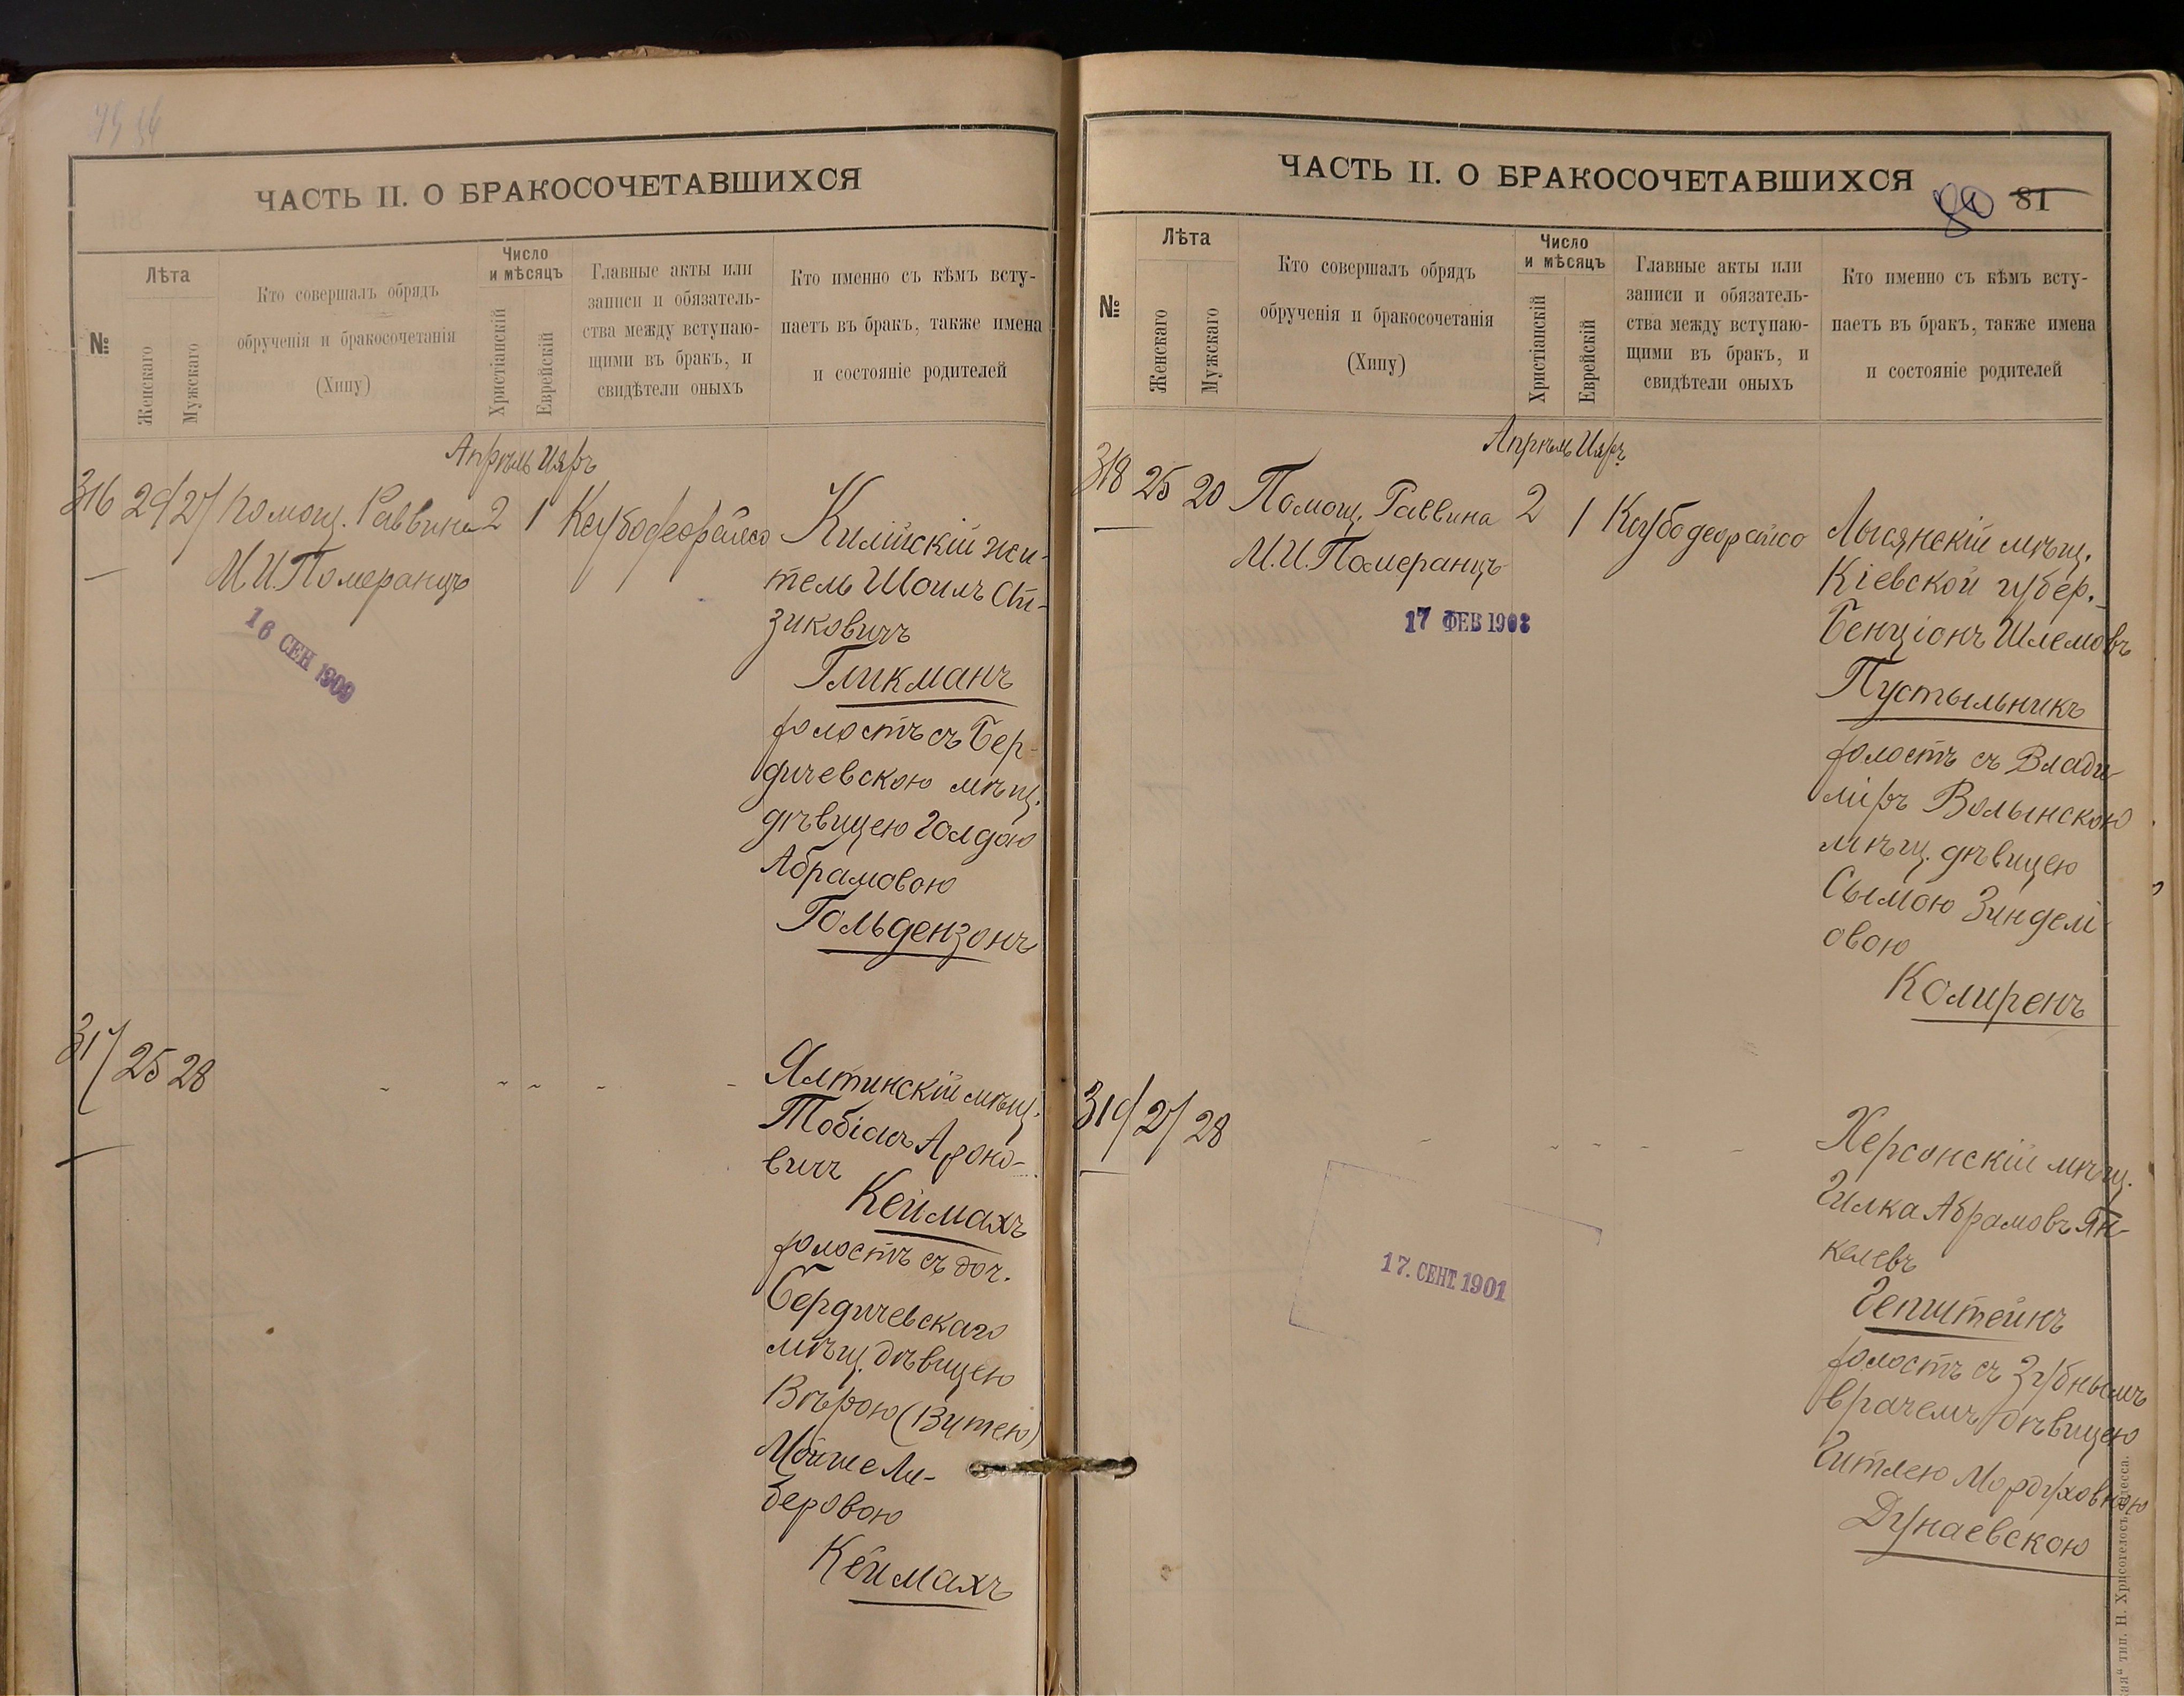 ЧАСТЬ II. О БРАКОСОЧЕТАВШИХСЯ
№
Лѣта
Женскаго
Мужскаго
Кто совершалъ обрядъ
обрученія и бракосочетанія
(Хипу)
Число
и мѣсяцъ
Христіанскій
Еврейскій
Главные акты или
записи и обязатель-
ства между вступаю-
щими въ бракъ, и
свидѣтели оныхъ
Кто именно съ кѣмъ всту-
паетъ въ бракъ, также имена
и состояніе родителей
Апрѣль Ияръ
316 29 27 Помощ. Раввина 2 1 Ксубодеорайсо
М.И. Померанцъ
16 СЕН 1909
Килійскій жи-
тель Шоилъ
зиковичъ
Гликманъ
холостъ съ Бер-
дичевскою мѣщ.
дѣвицею Голдою
Абрамовою
Гольдензонъ
317 25 28 - - - - -
Ялтинскій мѣщ.
Тобіасъ Ароно-
вичъ
Кеймахъ
холостъ съ доч.
Бердичевскаго
мѣщ. дѣвицею
Вѣрою (Витею)
Мойше Ли-
беровою
Кеймахъ
ЧАСТЬ II. О БРАКОСОЧЕТАВШИХСЯ
80 81
№
Лѣта
Женскаго
Мужскаго
Кто совершалъ обрядъ
обрученія и бракосочетанія
(Хипу)
Число
и мѣсяцъ
Христіанскій
Еврейскій
Главные акты или
записи и обязатель-
ства между вступаю-
щими въ бракъ, и
свидѣтели оныхъ
Кто именно съ кѣмъ всту-
паетъ въ бракъ, также имена
и состояніе родителей
Апрѣль Ияръ
318 25 20 Помощ. Раввина 2 1 Ксубодеорайсо
М.И. Померанцъ
17 ФЕВ 1903
Лысянскій мѣщ.
Кіевской губер.
Бенціонъ Шлемовъ
Пустыльникъ
холостъ съ Влади-
міръ Волынскою
мѣщ. дѣвицею
Сымою Зинделі
овою
Колиренъ
319 27 28 - - - - -
17. СЕНТ. 1901
Херсонскій мѣщ.
Гилка Абрамовъ Ян-
келевъ
Гепштейнъ
холостъ съ Зубнымъ
врачемъ дѣвицею
Гитлею Мордуховною
Дунаевскою
тип. Н. Хрисогелосъ, Одесса.